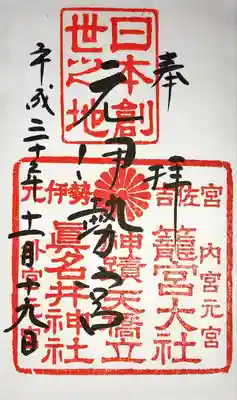 奉拝
日本創
世之地
元伊勢之宮
吉佐宮
内宮元宮
籠宮大社
神蹟天橋立
元伊勢
眞名井神社
外宮元宮
平成三十年十一月十九日